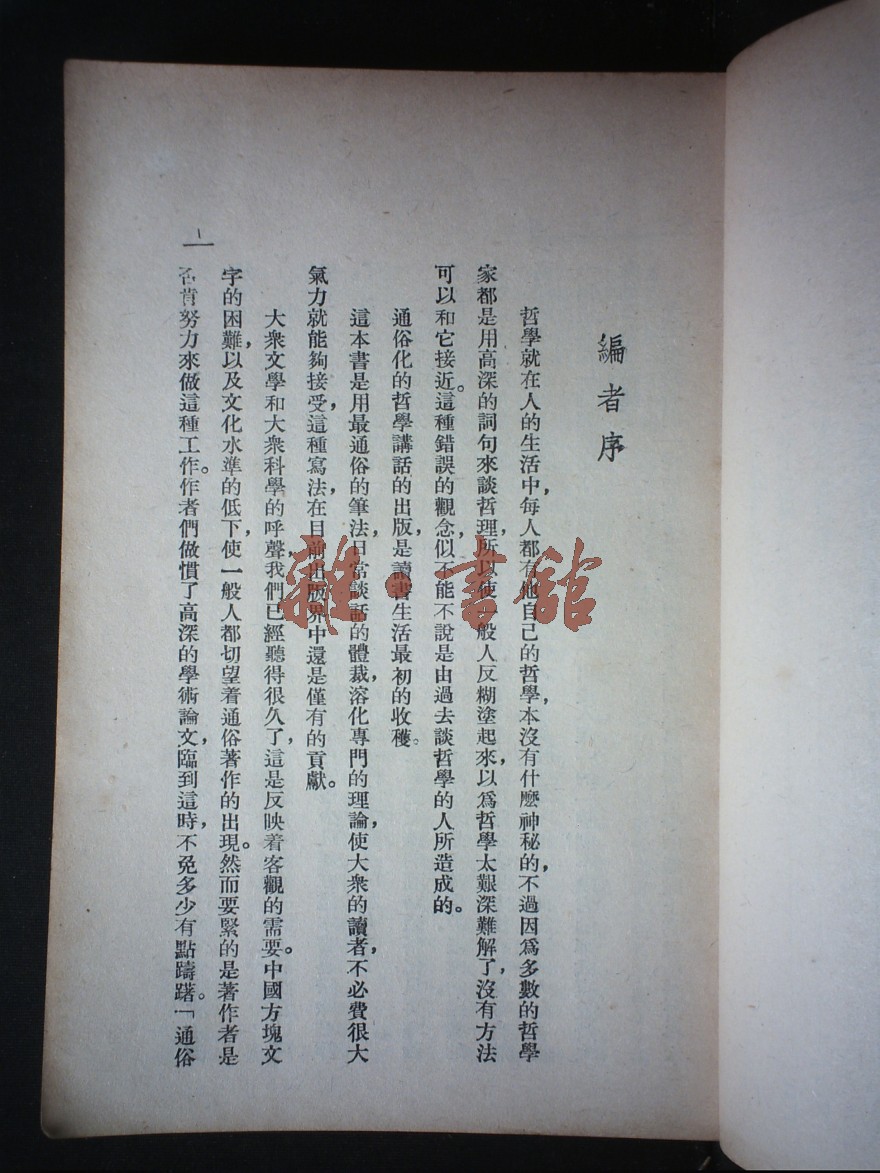 編者序
哲學就在人的生活中，每人都有他自己的哲學，本沒有什麽神秘的，不過因爲多數的哲學
家都是用高深的詞句來談哲理，所以使一般人反糊塗起來，以爲哲學太艱深難解了，沒有方法
可以和它接近。這種錯誤的觀念，似不能不說是由過去談哲學的人所造成的。
通俗化的哲學講話的出版，是讀書生活最初的收穫。
這本書是用最通俗的筆法，日常談話的體裁，溶化專門的理論，使大衆的讀者，不必費很大
氣力就能夠接受，這種寫法，在目前出版界中還是僅有的貢獻。
大衆文學和大衆科學的呼聲，我們已經聽得很久了，這是反映着客觀的需要。中國方塊文
字的困難，以及文化水準的低下，使一般人都切望着通俗著作的出現。然而要緊的是著作者是
否肯努力來做這種工作。作者們做慣了高深的學術論文，臨到這時，不免多少有點躊躇。「通俗
一
雜·書館